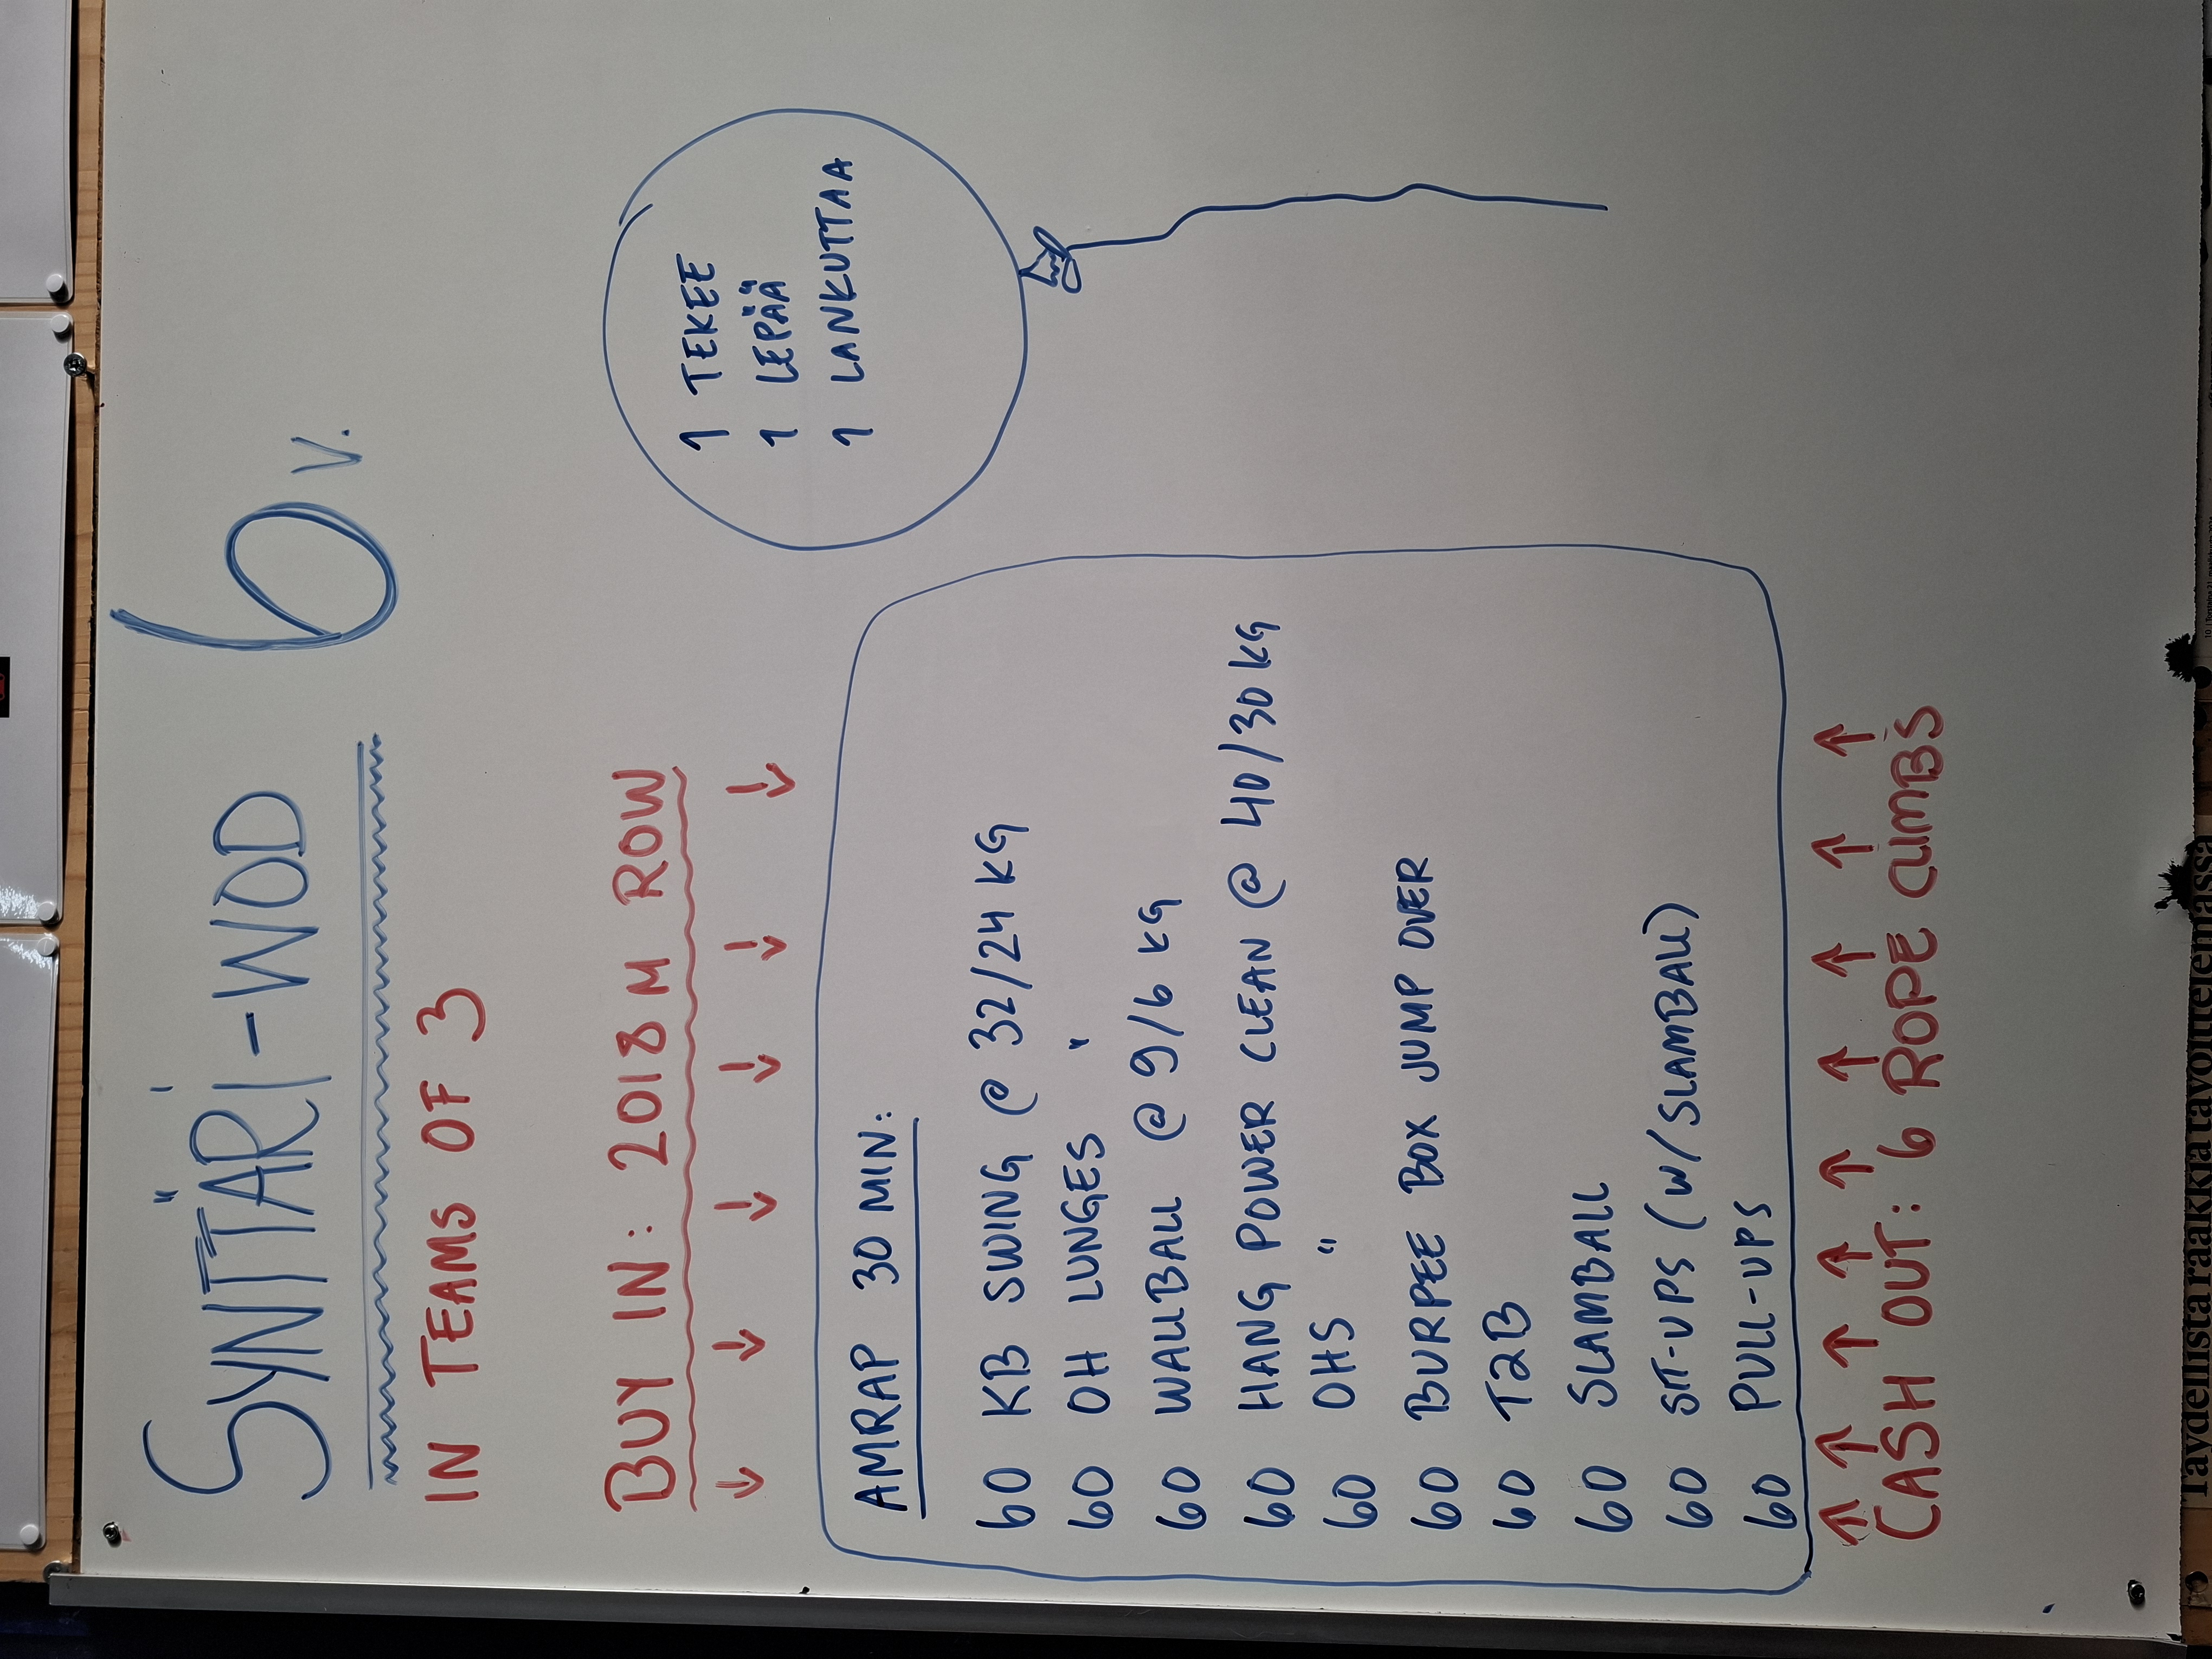 SYNTTÄRI-WOD 6 v.
IN TEAMS OF 3
BUY IN: 2018 M ROW
↓ ↓ ↓ ↓ ↓ ↓
1 TEKEE
1 LEPÄÄ
1 LANKUTTAA
AMRAP 30 MIN:
60 KB SWING @ 32/24 KG
60 OH LUNGES "
60 WALLBALL @ 9/6 KG
60 HANG POWER CLEAN @ 40/30 KG
60 OHS "
60 BURPEE BOX JUMP OVER
60 T2B
60 SLAMBALL
60 SIT-UPS (W/SLAMBALL)
60 PULL-UPS
↑ ↑ ↑ ↑ ↑ ↑ ↑ ↑ ↑
CASH OUT: 6 ROPE CLIMBS
Täydellistä raakkia tavoittelemassa